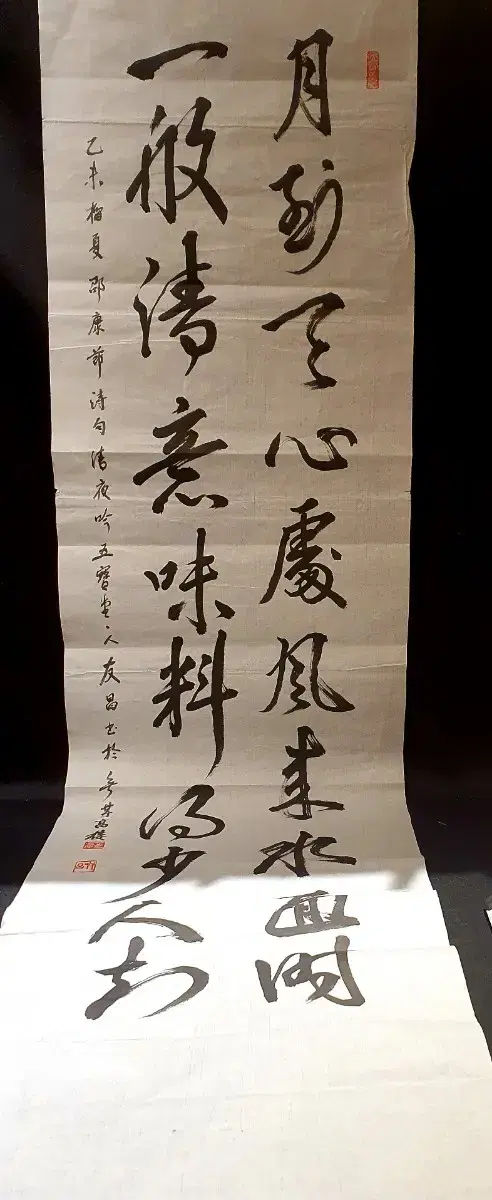 月到天心處風來水面時
一般清意味料得少人知
乙未榴夏邵康節詩句清夜吟五寶堂主人友昌書於